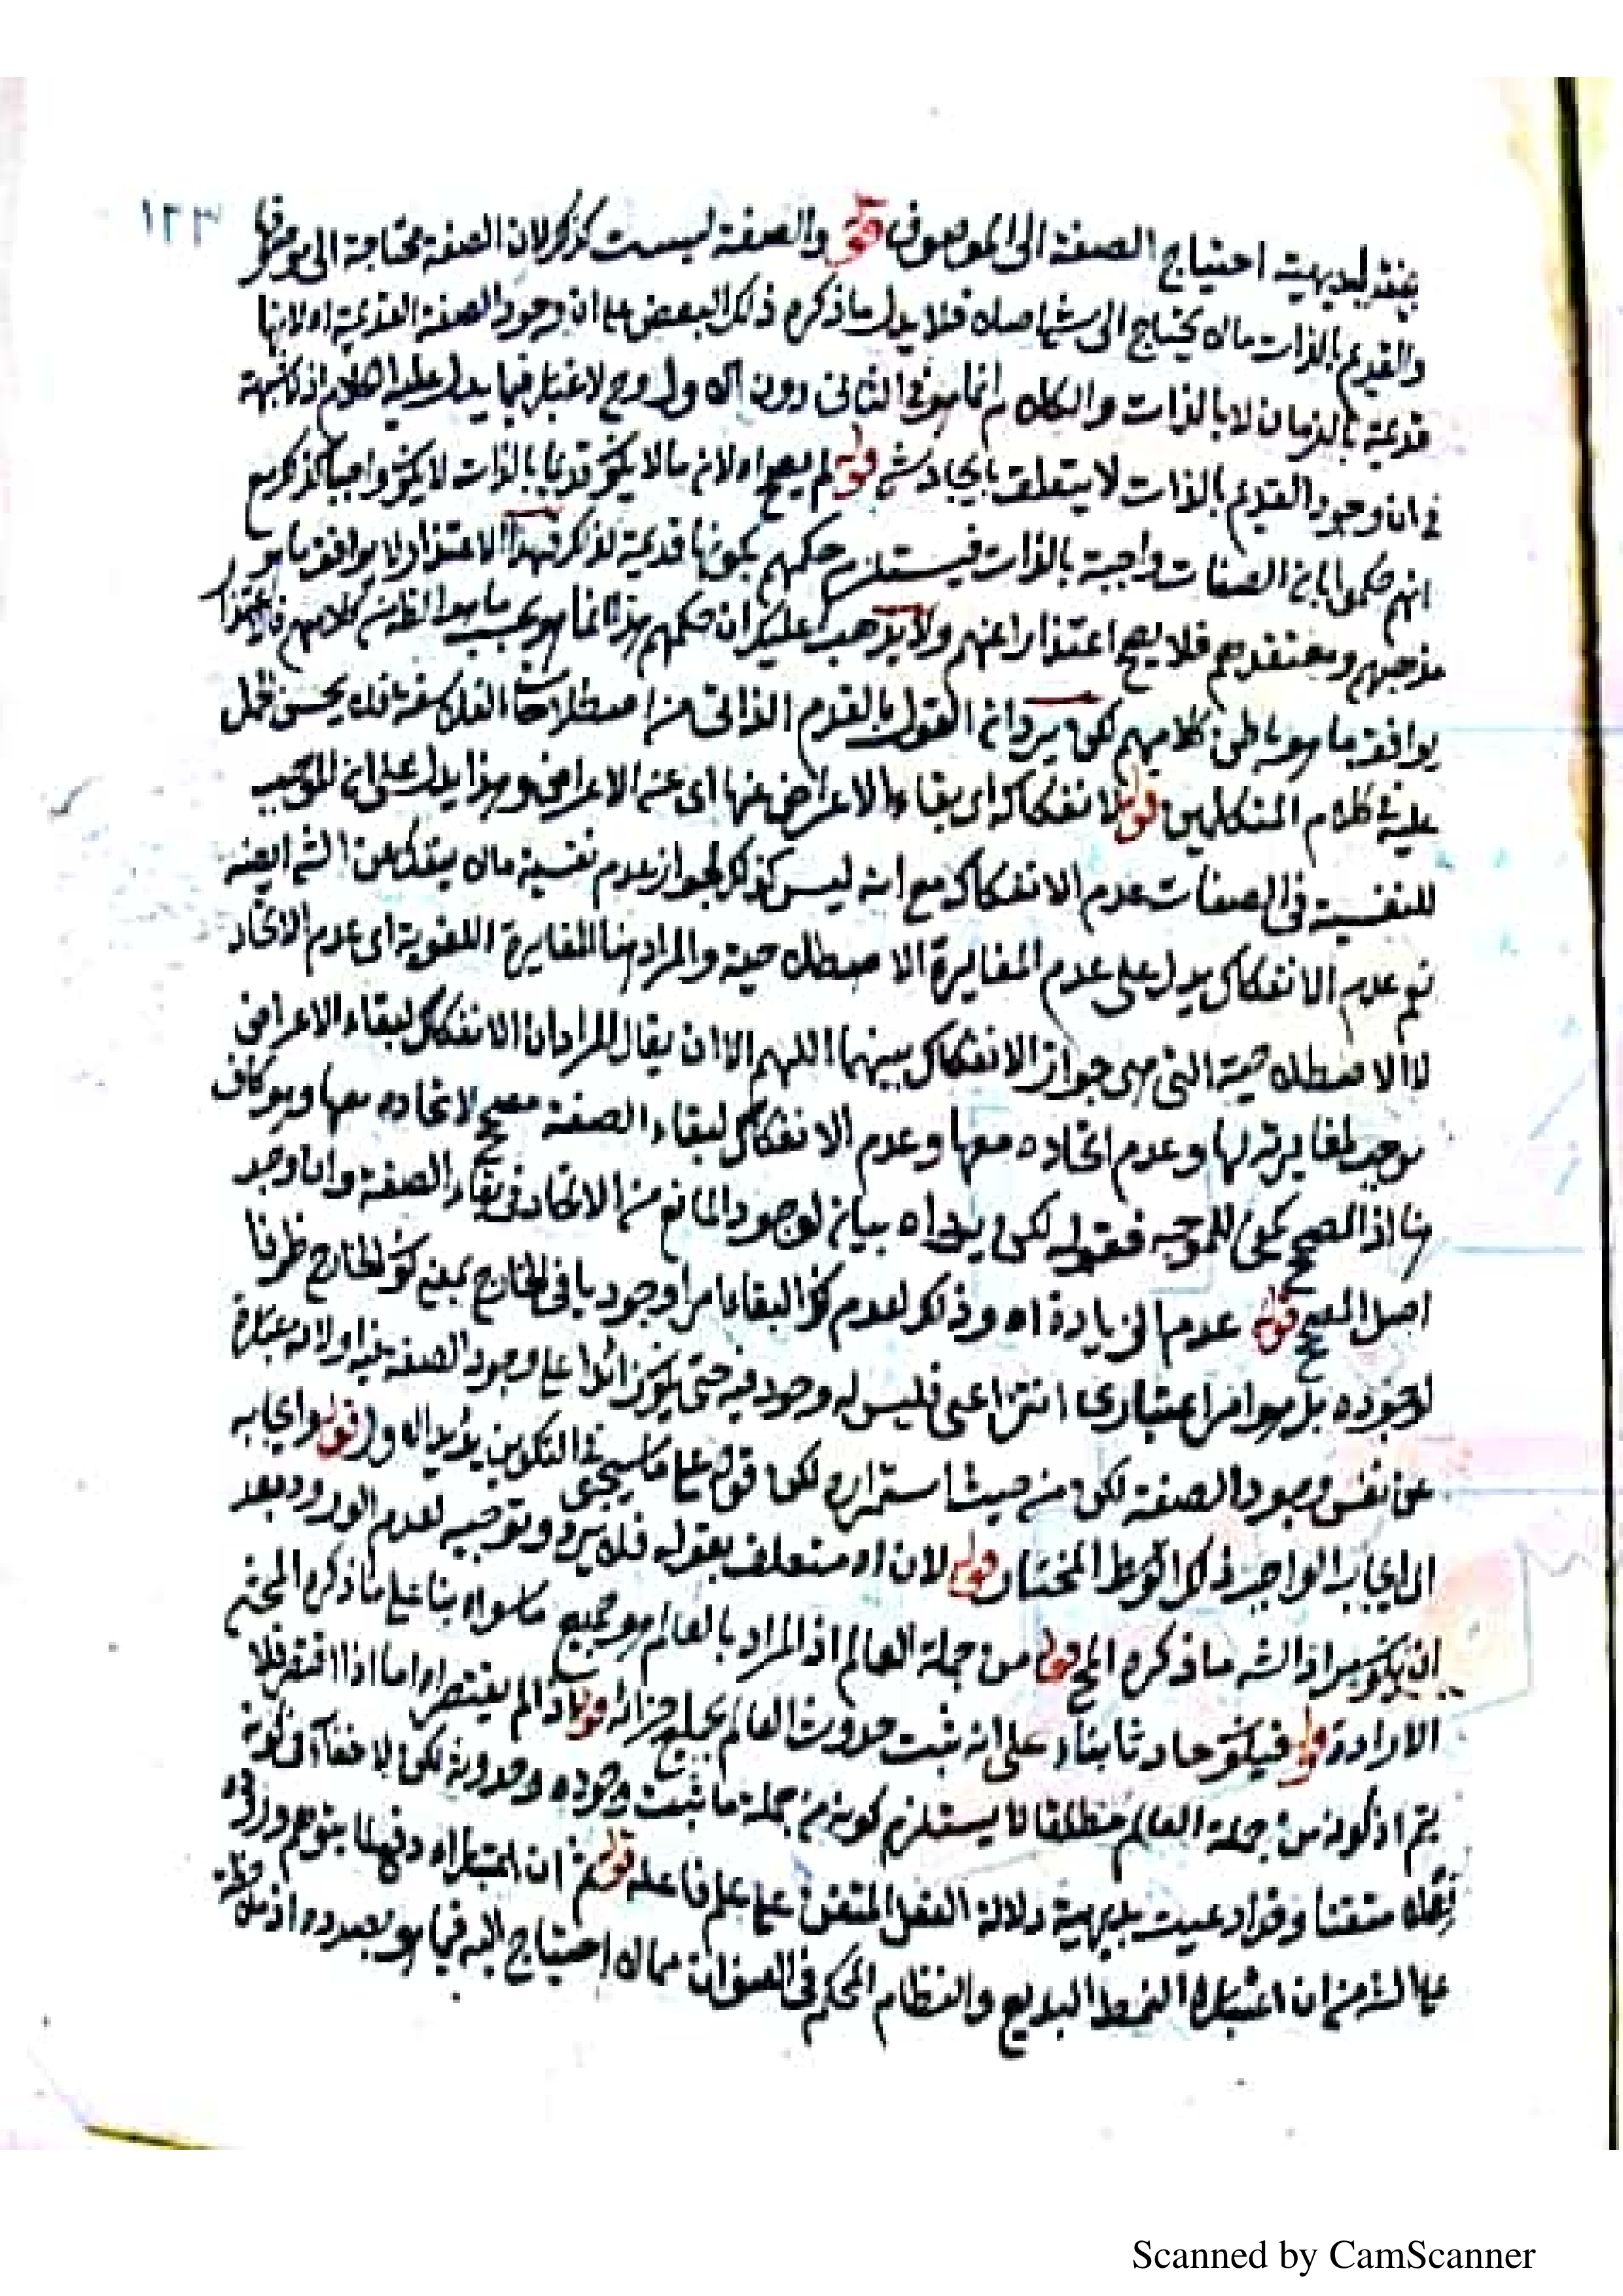 ١٢٣
احتياج الصفة الى الموصوف قوله والصفة ليست كذلك لان الصفة محتاجة الى موصوفها
والقديم بالذات مالا يحتاج الى شئ اصلا فلا يدل ما ذكره ذلك البعض على ان وجود الصفة القديمة اه لانها
قديمة بالزمان لا بالذات والكلام انما هو فى الثانى دون الاول وح لا غبار فيما يدل عليه الكلام اذ لا شبهة
فى ان وجود القديم بالذات لا يتعلق بايجاد شئ قوله لم يصح اه لان مالا يكون قديما بالذات لا يكون واجبا كذلك مع
انهم حكموا بان الصفات واجبة بالذات فيستلزم حكمهم بكونها قديمة كذلك فهذا الاعتذار لا يوافق ما هو
مذهبهم ومعتقدهم فلا يصح اعتذارا عنهم ولا يذهب عليك ان حكمهم هذا انما هو بحسب ما هو الظ من كلامهم فالاعتذار
يوافق ما هو باطن كلامهم لكن يرد ان القول بالقدم الذاتى من اصطلاحات الفلاسفة فلا يحسن حمل
عليه كلام المتكلمين قوله لانفكاكه اى بقاء الاعراض عنها اى عن الاعراض وهذا يدل على ان الموجب
للنفسية فى الصفات عدم الانفكاك مع انه ليس كذلك لجواز عدم نفسية مالا ينفك عن الشئ ايضا
نعم عدم الانفكاك يدل على عدم المغايرة الاصطلاحية والمراد هنا المغايرة اللغوية اى عدم الاتحاد
لا الاصطلاحية التى هى جواز الانفكاك بينهما اللهم الا ان يقال المراد ان الانفكاك لبقاء الاعراض
موجب لمغايرته لها وعدم اتحاده معها وعدم الانفكاك لبقاء الصفة مصحح لاتحاده معها وهو كاف
هنا اذ المصحح يكفى للموجه فقوله لكن يرد اه بيان لوجود المانع من الاتحاد فى بقاء الصفة وان وجد
اصل المصحح قوله عدم الزيادة اه وذلك لعدم كون البقاء امرا وجوديا فى الخارج بمعنى كون الخارج ظرفا
لوجوده بل هو امر اعتبارى انتزاعى فليس له وجود فيه حتى يكون زائدا على وجود الصفة اولا لانه عبارة
عن نفس وجود الصفة لكن من حيث استمراره لكن قولهم على ما سيجئ فى التكوين يؤيد الاول قوله وايجابه
اى ايجاب الواجب ذلك الوسط المختار قوله لان اه متعلق بقوله فلا يرد وتوجيه لعدم الورود بعد
ان يكون مراد الشه ما ذكره المح قوله من جملة العالم اذ المراد بالعالم هو جميع ما سواه بناء على ما ذكره المحشى
الارادة قوله فيكون حادثا بناء على انه ثبت حدوث العالم بجميع اجزائه قوله اذا لم يقتصر اه اما اذا اقتصر فلا
يتم اذ كونه من جملة العالم مطلقا لا يستلزم كونه من جملة ما ثبت وجوده وحدوثه لكن لا خفاء فى كونه
فعلا متقنا وقد ادعيت بديهية دلالة الفعل المتقن على علم فاعله قوله ثم ان اعتبار اه دفع لما يتوهم وروده
على الشه من ان اعتباره النمط البديع والنظام المحكم فى العنوان مما لا احتياج اليه فيما هو بصدده اذ
Scanned by CamScanner